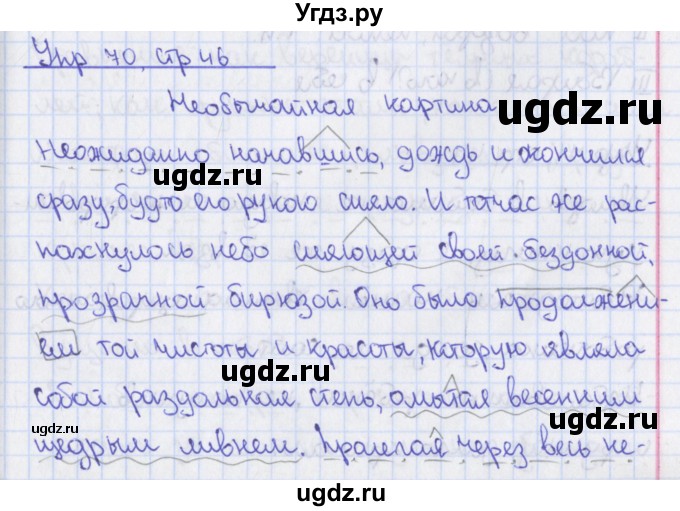 Угдз.ру
Упр 70, стр 46
Необычайная картина
ugdz.ru
Неожиданно начавшись, дождь и кончился
ugdz.ru
ugdz.ru
сразу, будто его рукою сняло. И тотчас же рас-
пахнулось небо сияющей своей бездонной,
прозрачной бирюзой. Оно было продолжени-
ем той чистоты и красоты, которую являла
ugdz.ru
собой раздольная степь, омытая весенним
ugdz.ru
ugdz.ru
щедрым ливнем. Пролегая через весь не-
ugdz.ru